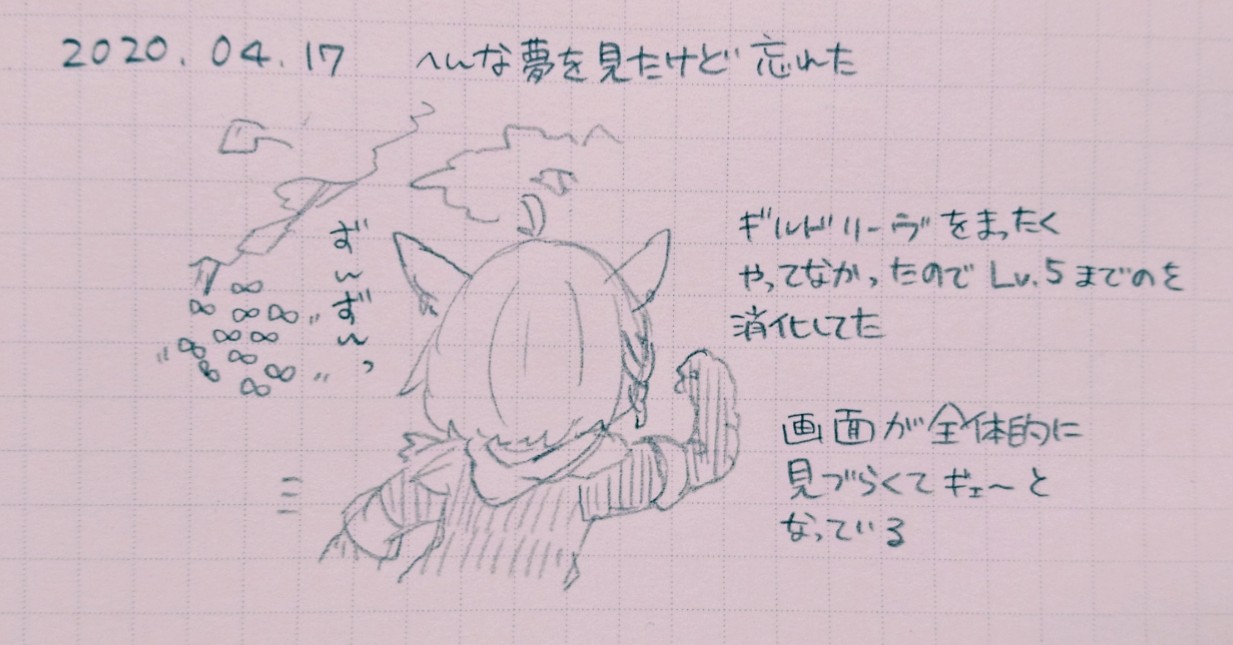 2020.04.17 へんな夢を見たけど忘れた
ず〜ず〜っ
ギルドリーヴをまったく
やってなかったのでLv.5までのを
消化してた
画面が全体的に
見づらくてギェ〜と
なっている